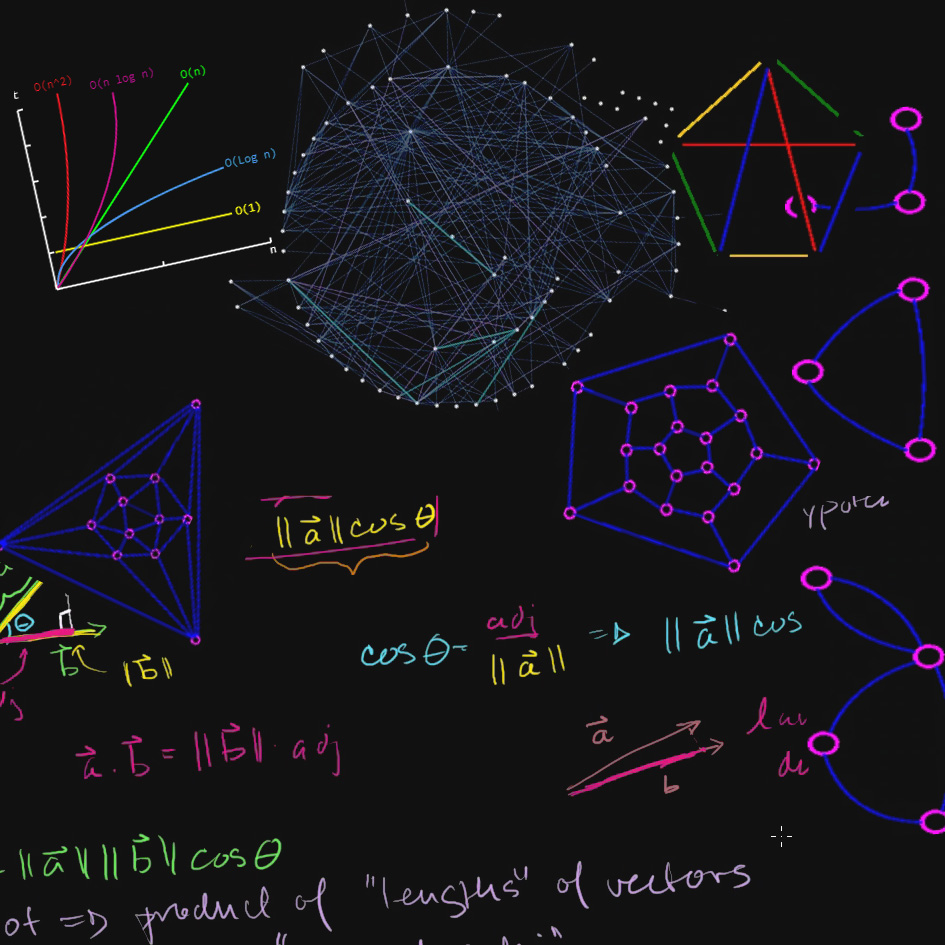 t
O(n^2)
O(n log n)
O(n)
O(Log n)
O(1)
n
||a⃗|| cos θ
θ
b⃗
||b⃗||
cos θ = adj / ||a⃗|| => ||a⃗|| cos
a⃗ . b⃗ = ||b⃗|| . adj
a⃗
b
||a⃗|| ||b⃗|| cos θ
ot => product of "lengths" of vectors